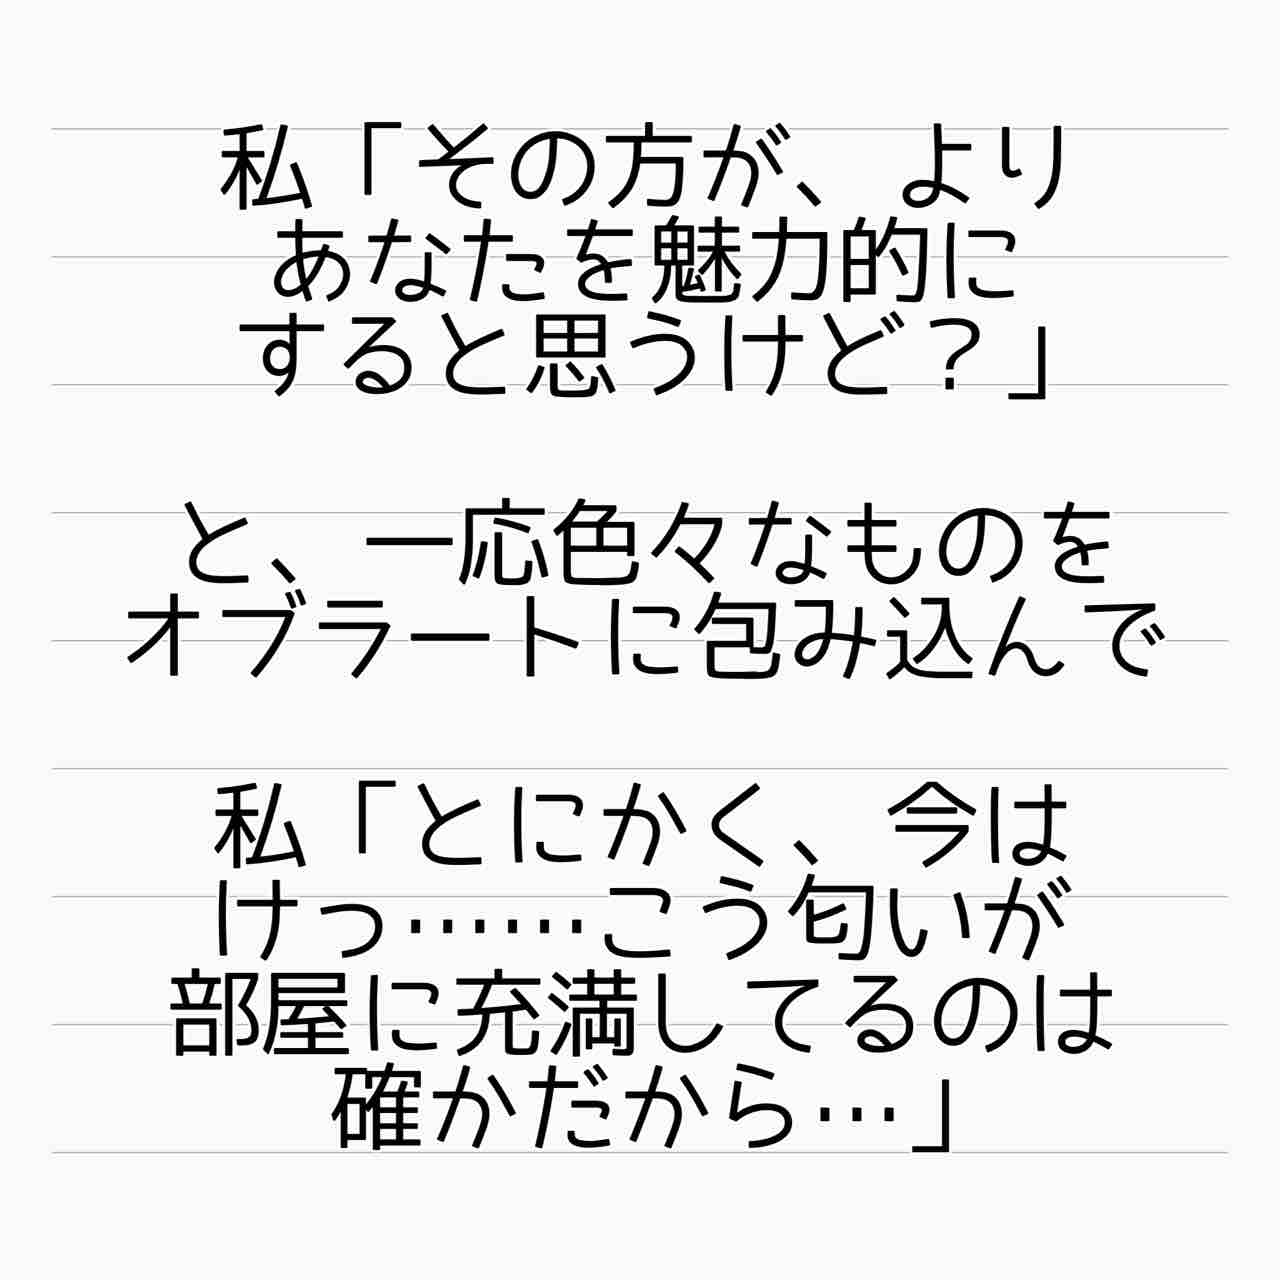 私「その方が、より
あなたを魅力的に
すると思うけど？」
と、一応色々なものを
オブラートに包み込んで
私「とにかく、今は
けっ……こう匂いが
部屋に充満してるのは
確かだから…」